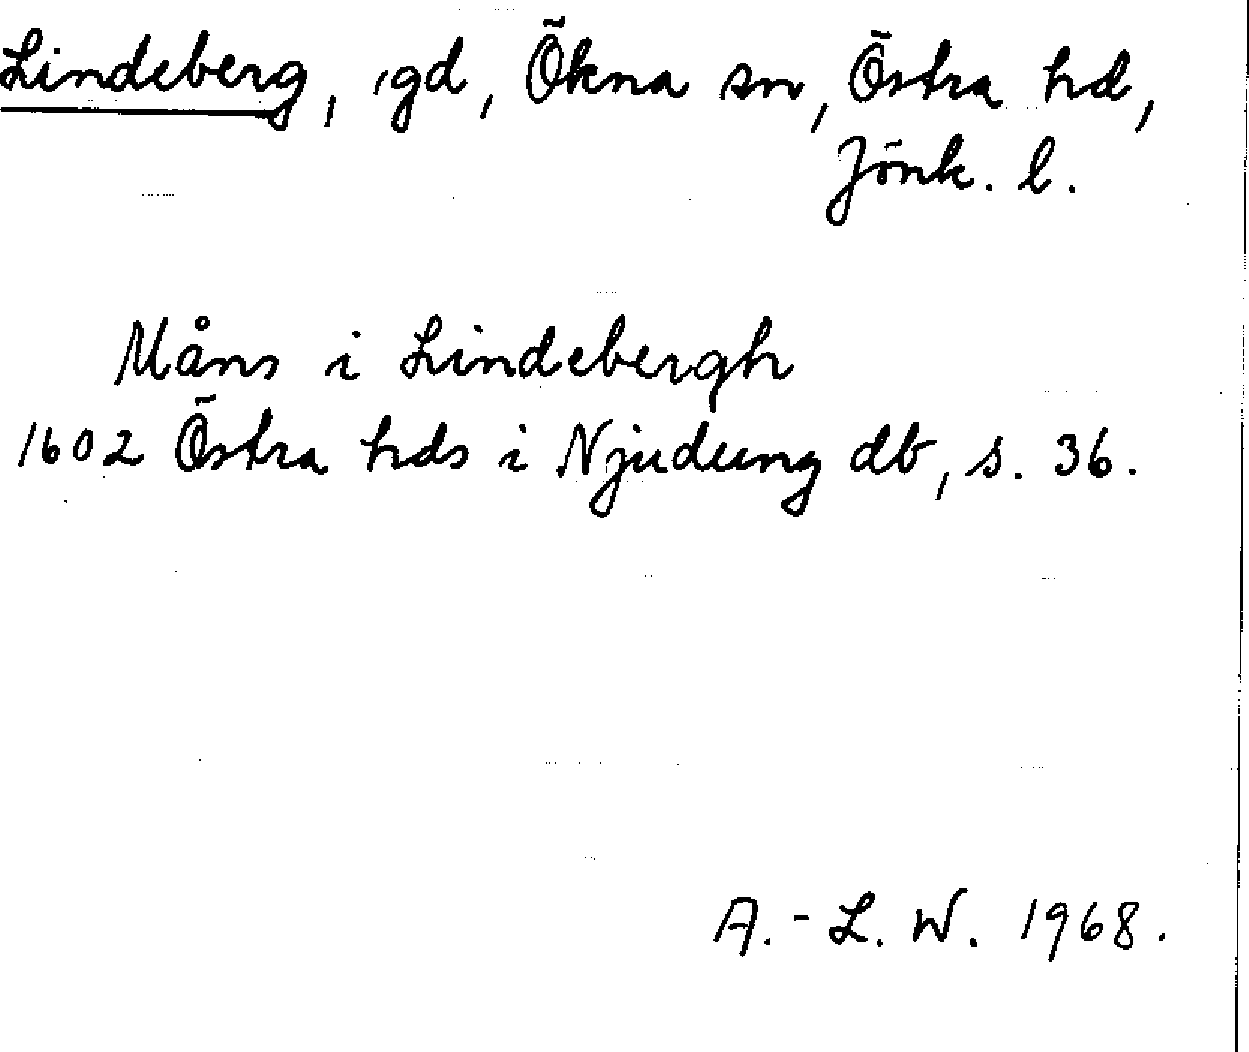 Lindeberg, gd, Ökna sn, Östra hd,
Jönk. l.
Måns i Lindebergh
1602 Östra hds i Njudung db, s. 36.
A.-L. W. 1968.